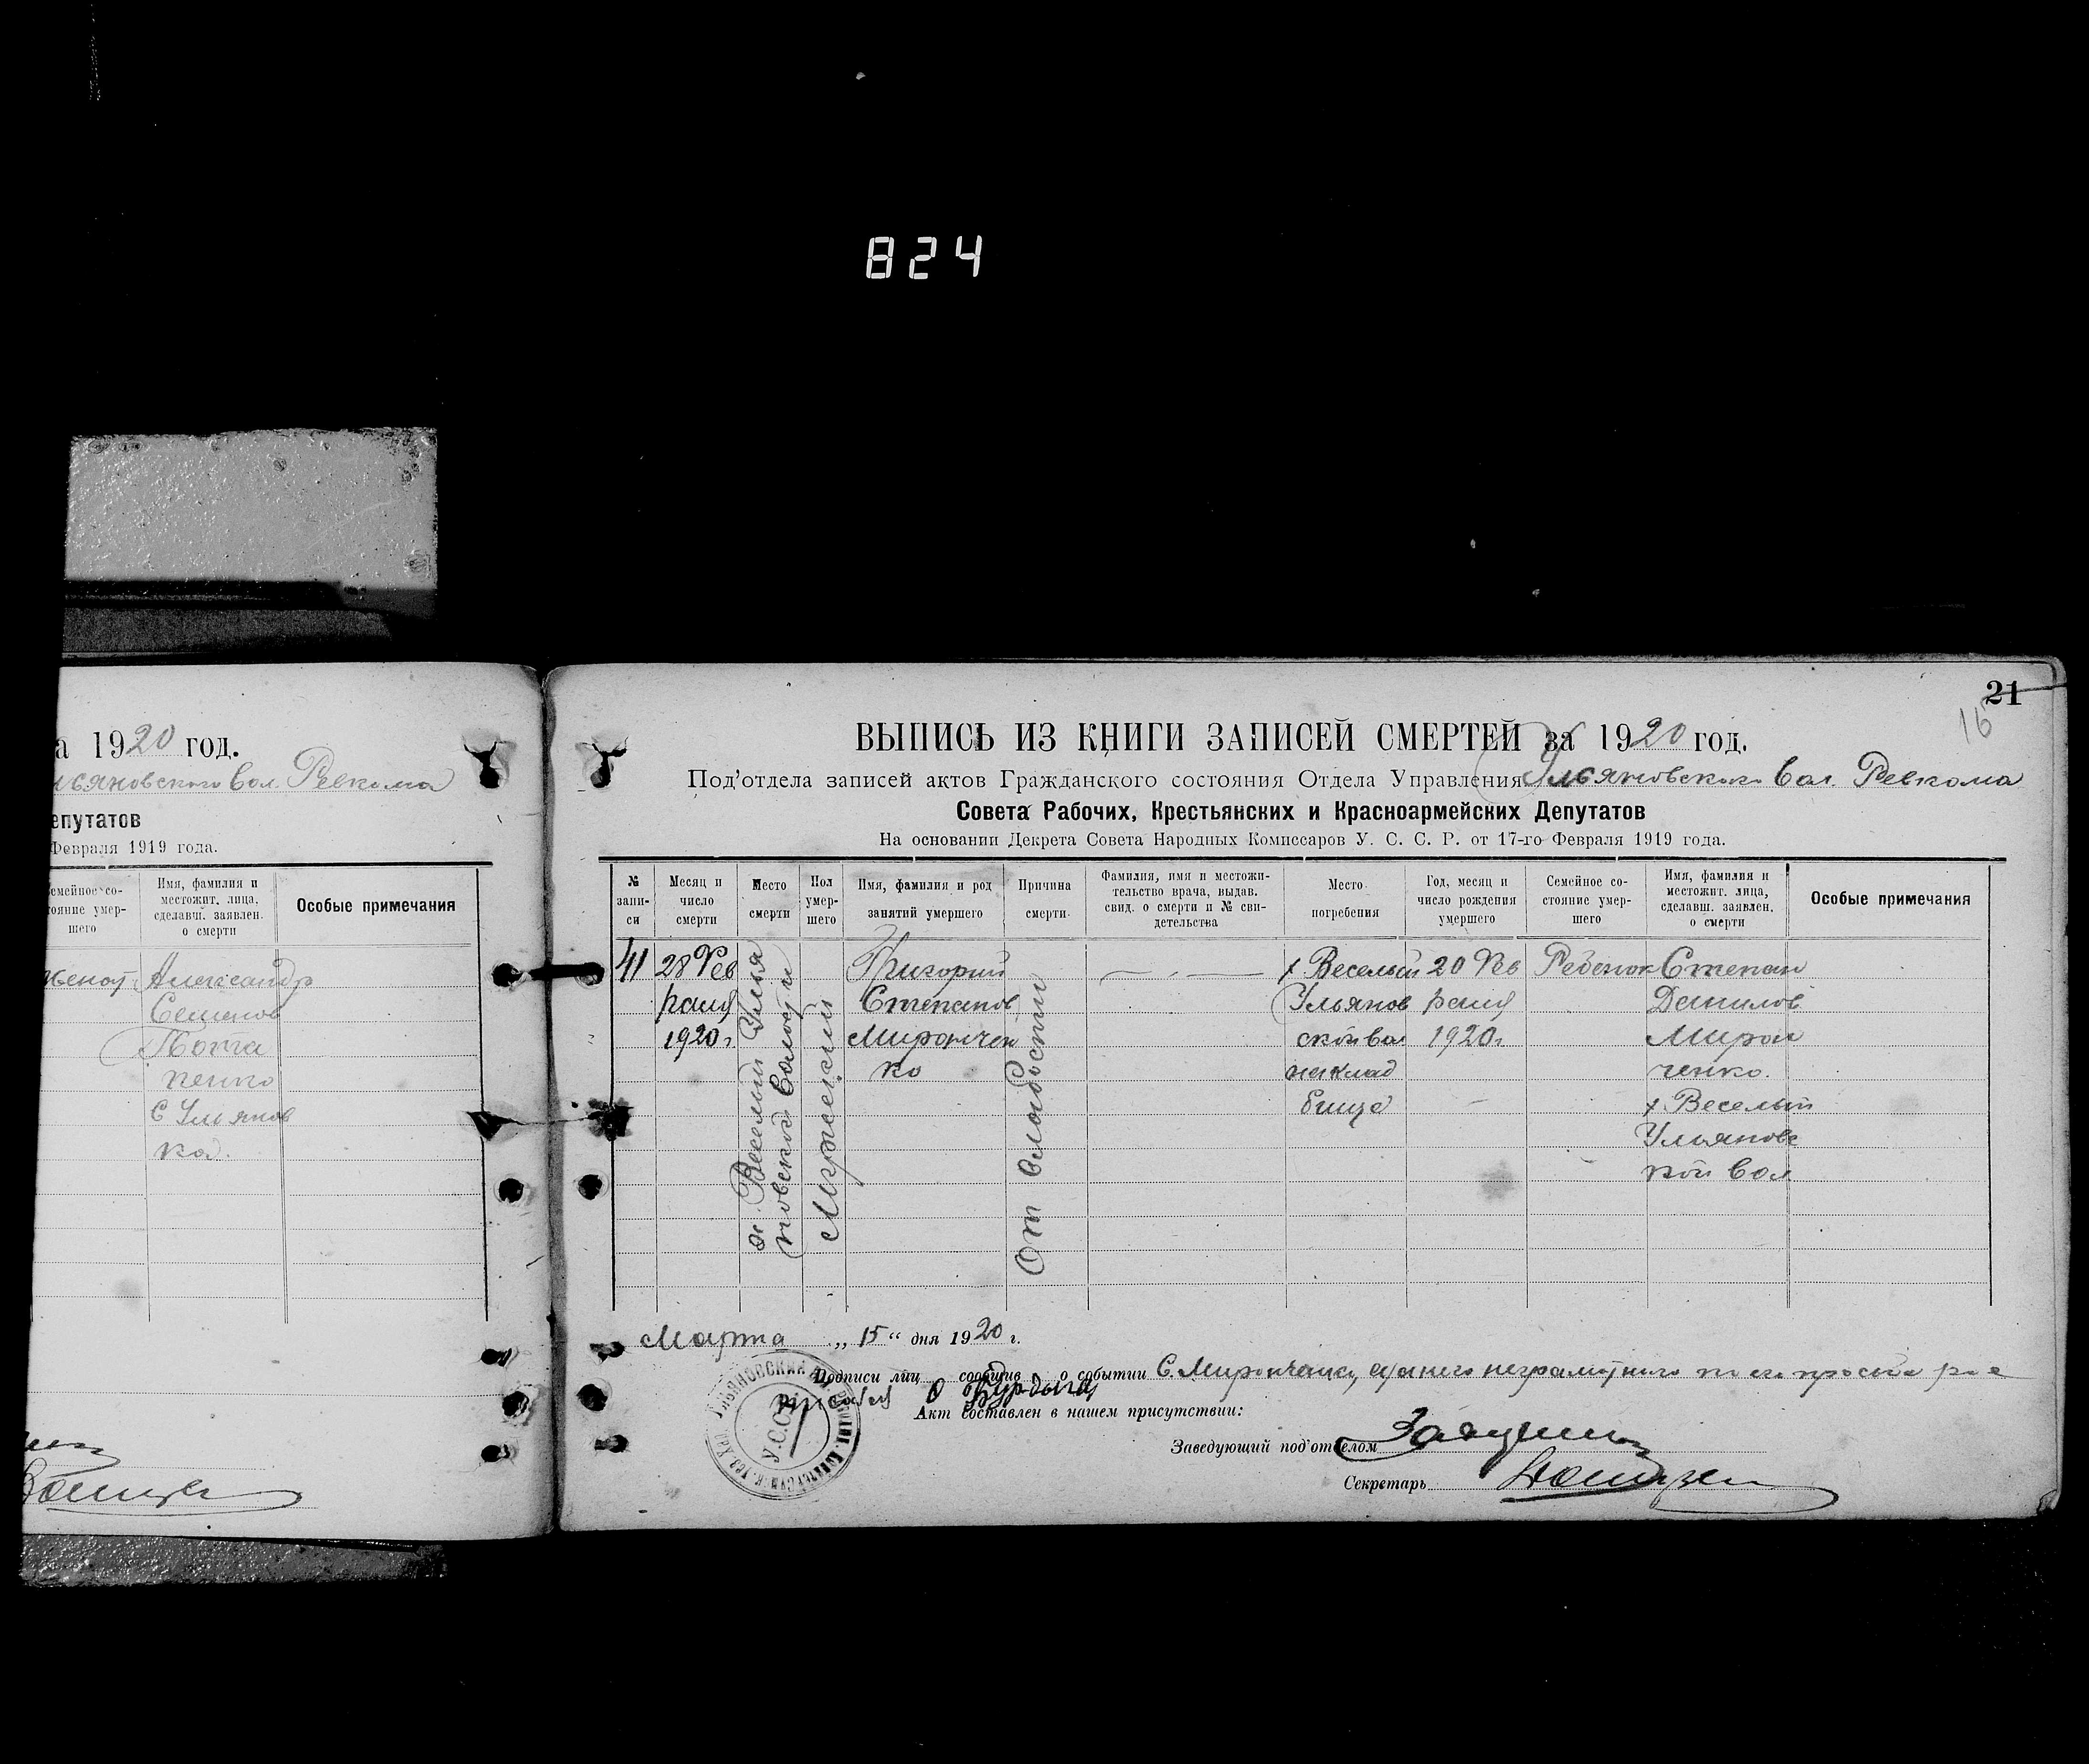 824
а 1920 год.
льяновского Вол. Ревкома
епутатов
Февраля 1919 года.
емейное со-
тояние умер-
шего
Имя, фамилия и
местожит. лица,
сделавш. заявлен.
о смерти
Особые примечания
Александр
Семенов
Пота
пенко
с Ульянов
ка.
21
16
ВЫПИСЬ ИЗ КНИГИ ЗАПИСЕЙ СМЕРТЕЙ за 1920 год.
Под'отдела записей актов Гражданского состояния Отдела Управления Ульяновского Вол. Ревкома
Совета Рабочих, Крестьянских и Красноармейских Депутатов
На основании Декрета Совета Народных Комиссаров У. С. С. Р. от 17-го Февраля 1919 года.
№
запи-
си
Месяц и
число
смерти
Место
смерти
Пол
умер-
шего
Имя, фамилия и род
занятий умершего
Причина
смерти
Фамилия, имя и местожи-
тельство врача, выдав.
свид. о смерти и № сви-
детельства
Место
погребения
Год, месяц и
число рождения
умершего
Семейное со-
стояние умер-
шего
Имя, фамилия и
местожит. лица,
сделавш. заявлен.
о смерти
Особые примечания
41
28 Фев
раля
1920г
х. Веселый Улья
новской Волости
Мужеский
Григорий
Степанов
Мирончен
ко
От слабости
х Веселый
Ульянов
ской вол
на клад
бище
20 Фев
раля
1920г
Ребенок
Степан
Данилов
Мирон
ченко.
х Веселый
Ульяновс
кой Вол
Марта „ 15 “ дня 1920 г.
Подписи лиц сообщив о событии С. Миронченко, а за него неграмотного по его просьбе рас
писался
Акт составлен в нашем присутствии:
Заведующий под'отделом
Секретарь
У.С.С.Р.